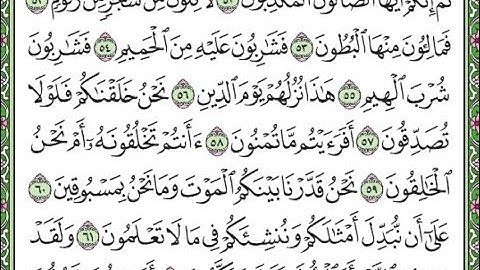 ثُمَّ إِنَّكُمْ أَيُّهَا ٱلضَّآلُّونَ ٱلْمُكَذِّبُونَ ٥١ لَءَاكِلُونَ مِن شَجَرٍ مِّن زَقُّومٍ ٥٢
فَمَالِـُٔونَ مِنْهَا ٱلْبُطُونَ ٥٣ فَشَٰرِبُونَ عَلَيْهِ مِنَ ٱلْحَمِيمِ ٥٤ فَشَٰرِبُونَ
شُرْبَ ٱلْهِيمِ ٥٥ هَٰذَا نُزُلُهُمْ يَوْمَ ٱلدِّينِ ٥٦ نَحْنُ خَلَقْنَٰكُمْ فَلَوْلَا
تُصَدِّقُونَ ٥٧ أَفَرَءَيْتُم مَّا تُمْنُونَ ٥٨ ءَأَنتُمْ تَخْلُقُونَهُۥٓ أَمْ نَحْنُ
ٱلْخَٰلِقُونَ ٥٩ نَحْنُ قَدَّرْنَا بَيْنَكُمُ ٱلْمَوْتَ وَمَا نَحْنُ بِمَسْبُوقِينَ ٦٠
عَلَىٰٓ أَن نُّبَدِّلَ أَمْثَٰلَكُمْ وَنُنشِئَكُمْ فِى مَا لَا تَعْلَمُونَ ٦١ وَلَقَدْ